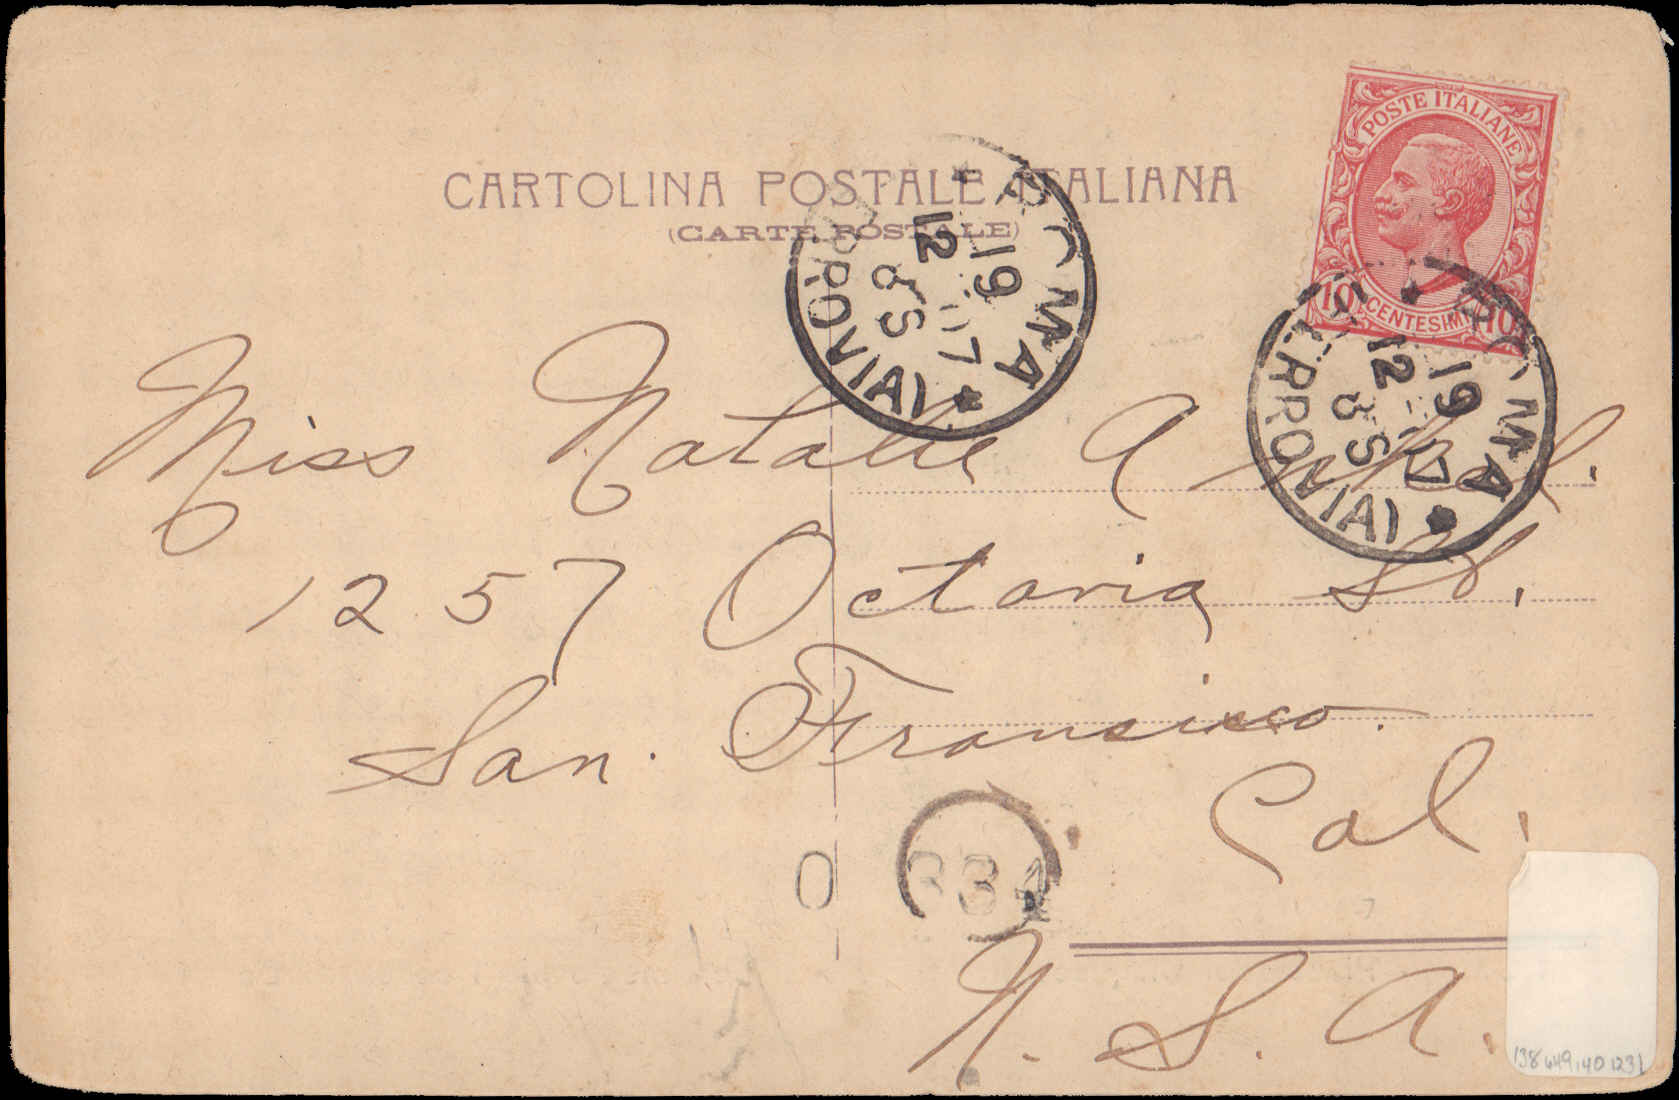 CARTOLINA POSTALE ITALIANA
(CARTE POSTALE)
POSTE ITALIANE
10 CENTESIMI 10
ROMA
FERROVIA
19
12 07
8 S
ROMA
FERROVIA
19
12 07
8 S
Miss Natalie A
1257 Octavia St.
San. Francisco.
Cal.
U. S. A.
O
334